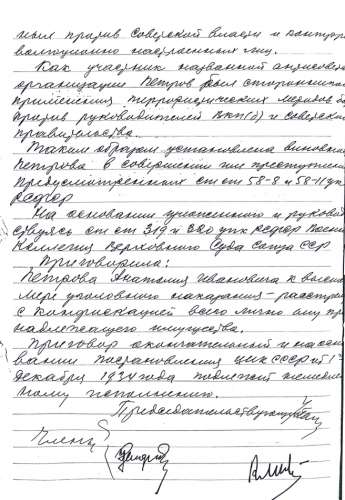 ных против Советской власти и контрре
волюционно настроенных лиц.
Как участник названной антисовет
организации Петров был сторонником
применения террористических методов бо
против руководителей ВКП(б) и Советского
правительства.
Таким образом установлена виновно
Петрова в совершении им преступлений
предусмотренных ст ст 58-8 и 58-11 ук
РСФСР
На основании изложенного и руковод
ствуясь ст ст 319 и 320 упк РСФСР Военн
Коллегия Верховного Суда Союза ССР
Приговорила:
Петрова Анатолия Ивановича к высшей
мере уголовного наказания – расстрелу
с конфискацией всего лично ему при
надлежащего имущества.
Приговор окончательный и на осно
вании постановления ЦИК СССР от 1го
декабря 1934 года подлежит немедлен
ному исполнению.
Председательствующий
Члены